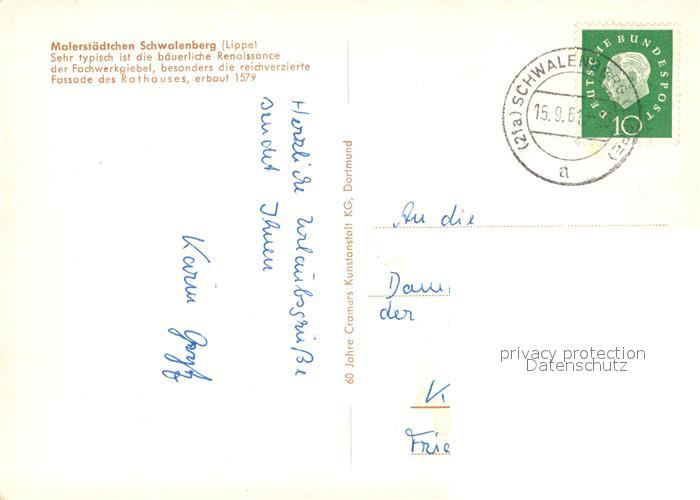 Malerstädtchen Schwalenberg (Lippe)
Sehr typisch ist die bäuerliche Renaissance
der Fachwerkgiebel, besonders die reichverzierte
Fassade des Rathauses, erbaut 1579
Herzliche Urlaubsgrüße
sendet Ihnen
Karin
60 Jahre Cramers Kunstanstalt KG, Dortmund
DEUTSCHE BUNDESPOST
10
(21a) SCHWALENBERG
15.9.61
a
An die
Dam
der
K
Frie
privacy protection
Datenschutz